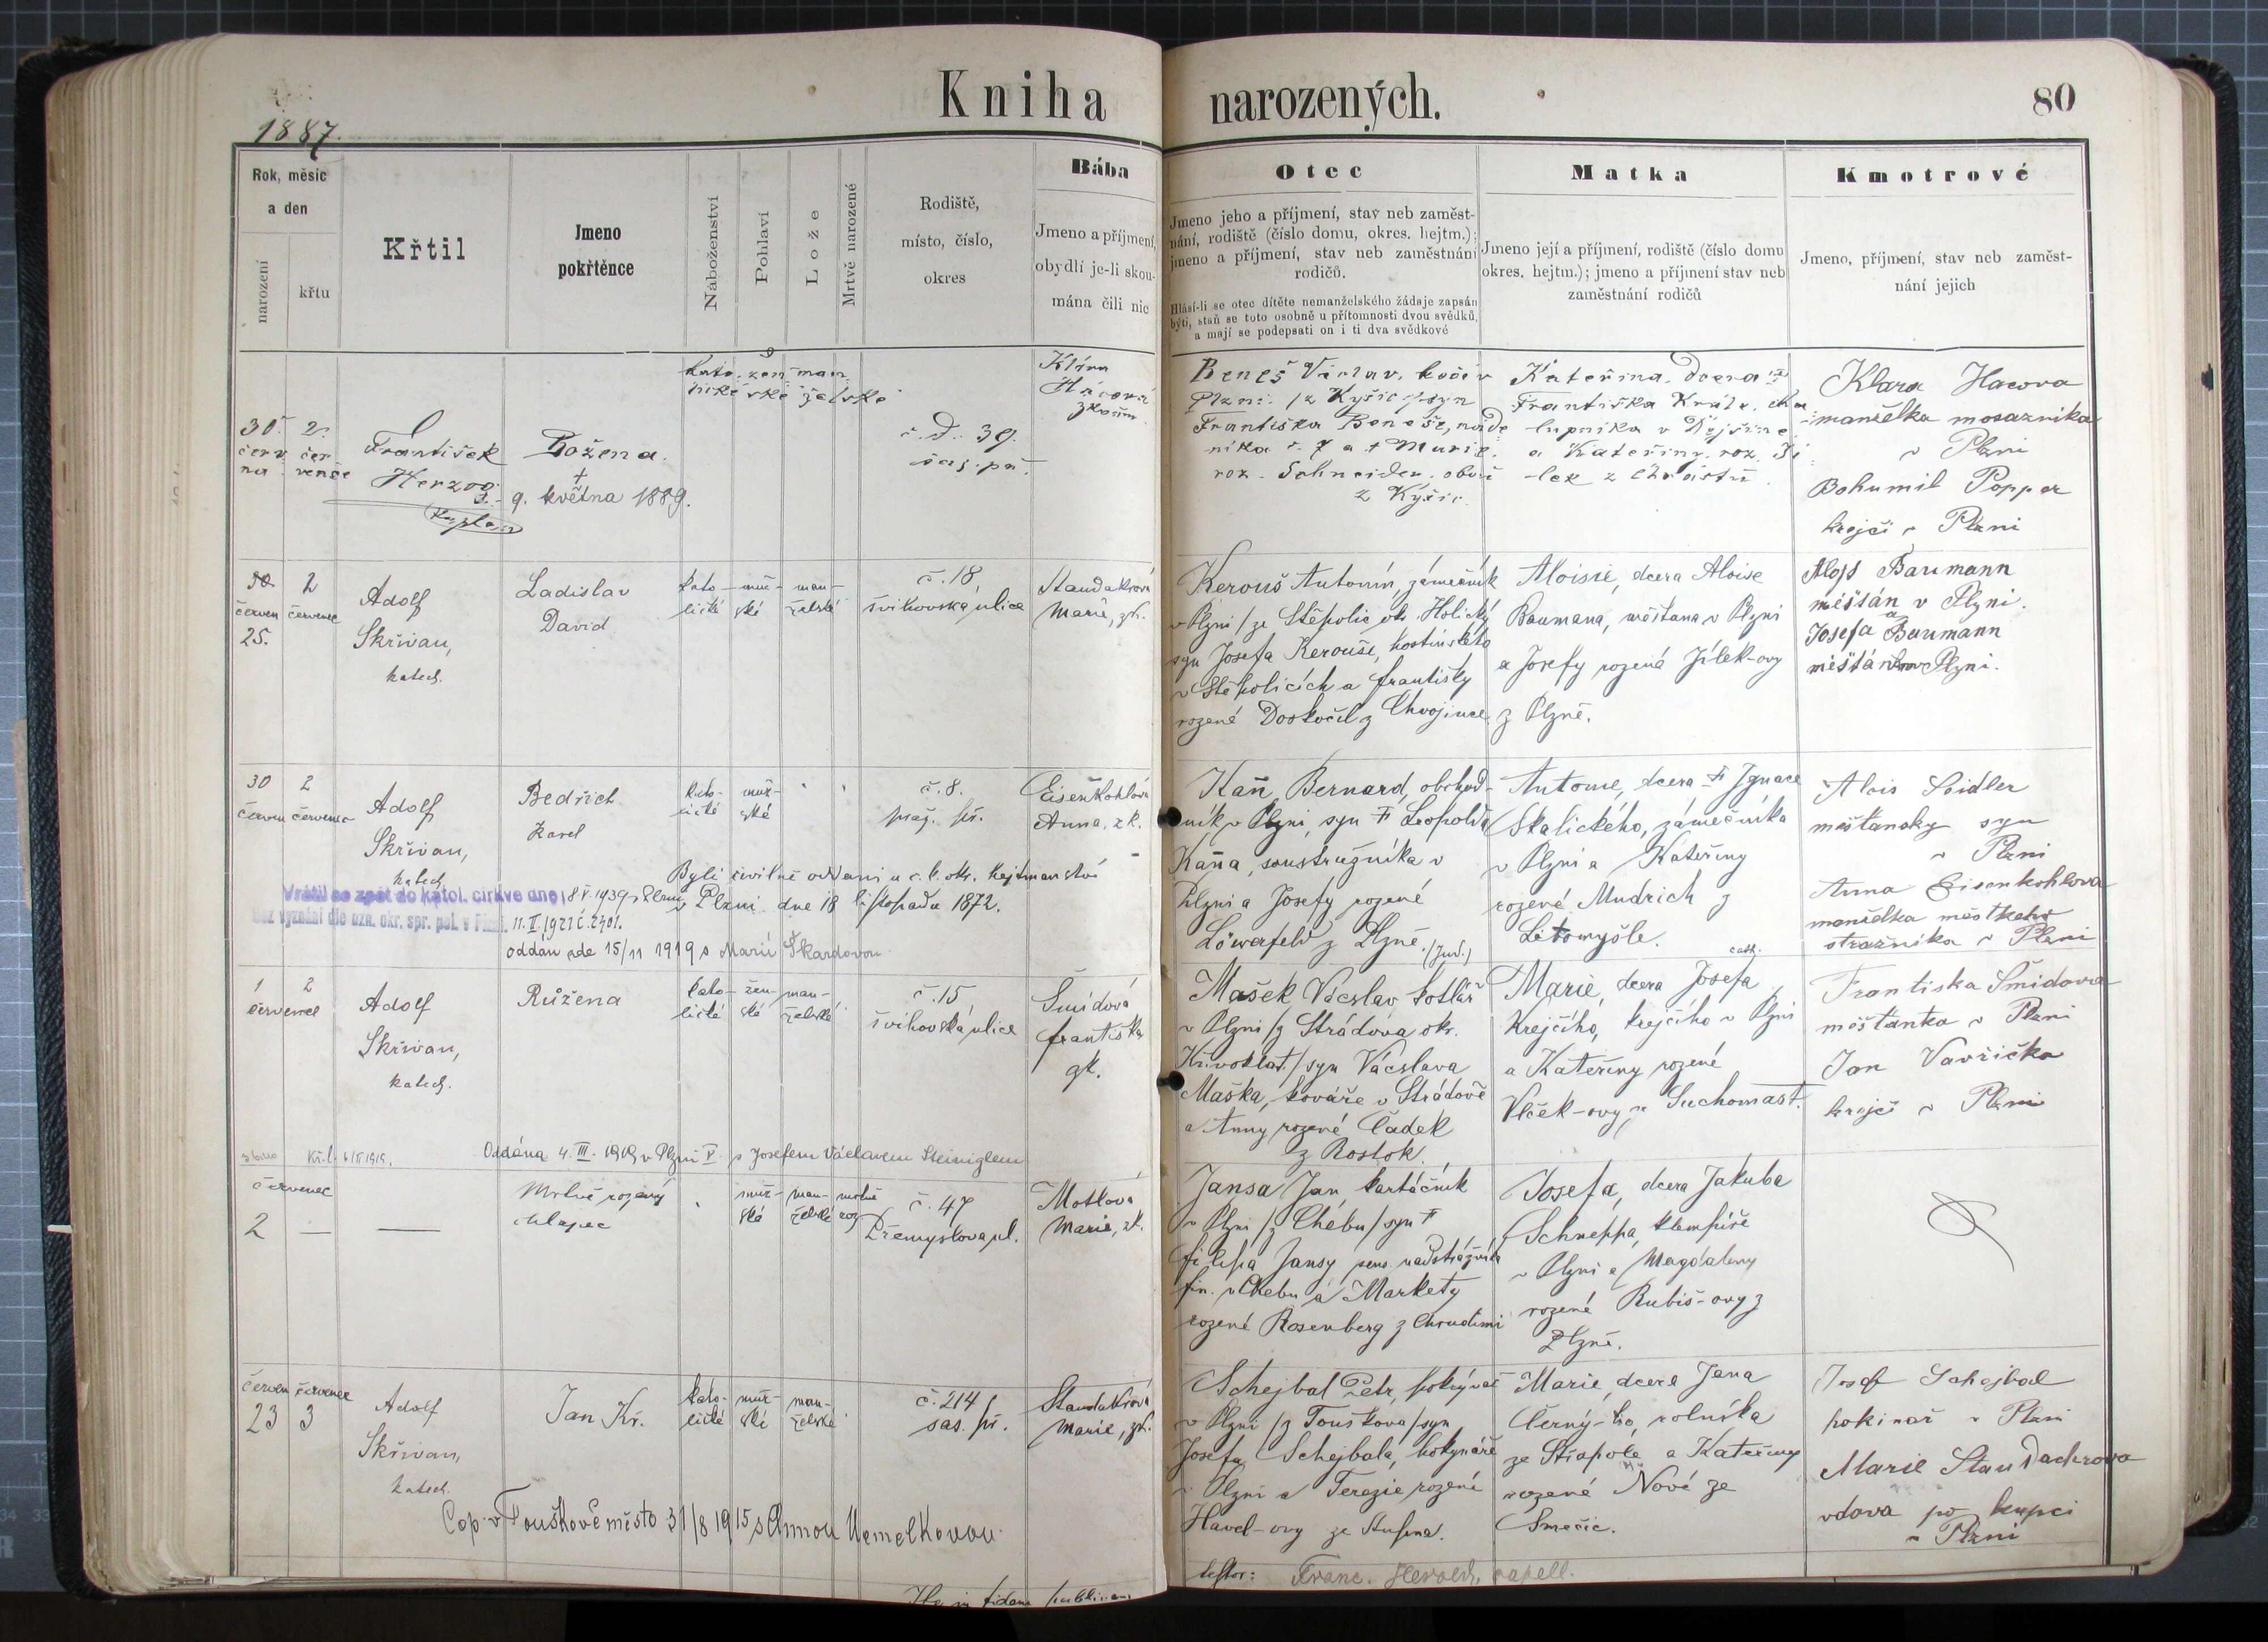 Kniha narozených.
80
1887.
Rok, měsíc
a den
narození
křtu
Křtil
Jmeno
pokřtěnce
Náboženství
Pohlaví
Lože
Mrtvě narozené
Rodiště,
místo, číslo,
okres
Bába
Jmeno a příjmení,
obydlí je-li skou-
mána čili nic
Otec
Jmeno jeho a příjmení, stav neb zaměst-
nání, rodiště (číslo domu, okres. hejtm.);
jmeno a příjmení, stav neb zaměstnání
rodičů.
Hlásí-li se otec dítěte nemanželského žádaje zapsán
býti, staň se toto osobně u přítomnosti dvou svědků,
a mají se podepsati on i ti dva svědkové
Matka
Jmeno její a příjmení, rodiště (číslo domu
okres. hejtm.); jmeno a příjmení stav neb
zaměstnání rodičů
Kmotrové
Jmeno, příjmení, stav neb zaměst-
nání jejich
30.
červ
na
2.
čer
vence
František
Herzog
Božena.
+
9. května 1889.
kato žen man
lické ské želské
č. d. 39.
sas. př.
Klára
Hácová
zkoum
Beneš Václav, kočí v
Plzni /z Kyšic/ syn
Františka Beneše, náde
níka č. 7 a + Marie,
roz. Schneider, obou
z Kyšic.
Kateřina, dcera
Františka Krále, cha
lupníka v Dýšině
a Kateřiny, roz. Ji
lek z Chrástu.
Klara Hacova
manželka mosaznika
v Plzni
Bohumil Popper
krejčí v Plzni
30
červen
25.
2
červenec
Adolf
Skřivan,
katech.
Ladislav
David
kato- muž- man-
lické ské želské
č. 18
švihovská ulice
Staudakrová
Marie, zk.
Kerouš Antonín, zámečník
v Plzni /ze Stěpolic okr. Holický
syn Josefa Kerouše, hostinského
v Stěpolicích a Františky
rozené Doskočil z Chvojince
Aloisie, dcera Aloise
Baumana, měšťana v Plzni
a Josefy rozená Jílek-ovy
z Plzně.
Alojs Baumann
měšťán v Plzni.
Josefa Baumann
30
červen
2
červenec
Adolf
Skřivan,
katech.
Bedřich
Karel
kato- muž-
lické ské
č. 8.
praž. př.
Eisenkohlová
Anna, zk.
Byli civilně oddáni u c. k. okr. hejtmanství
v Plzni dne 18 listopadu 1872.
Vrátil se zpět do katol. církve dne 18 V. 1939 v Plzni
bez vyznání dle ozn. okr. spr. pol. v Plzni. 11. II. 1921 č. 2901.
oddán zde 15/11 1919 s Marií Škardovou
Kaň, Bernard, obchod-
ník v Plzni, syn + Leopolda
Kaňa, soustružníka v
Plzni a Josefy rozené
Löwenfeld z Plzně. (Jud.)
Antonie, dcera + Ignace
Skalického, zámečníka
v Plzni a Kateřiny
rozené Mudrich z
Litomyšle. cath.
Alois Seidler
měšťansky syn
v Plzni
Anna Eisenkohlova
manželka městkeho
stražníka v Plzni
1
2
červenec
Adolf
Skřivan,
katech.
Růžena
kato- žen- man-
lické ské želské
č. 15
švihovská ulice
Šmídová
Františka
zk.
Oddána 4. III. 1919 v Plzni s Josefem Václavem Steiniglem
Mašek Vácslav, kotlář
v Plzni /z Strádova okr.
Křivoklat./ syn Vácslava
Maška, kováře v Strádově
a Anny rozené Čadek
z Rostok.
Marie, dcera Josefa
Krejčího, krejčího v Plzni
a Kateřiny rozené
Vlček-ovy z Suchomast.
Frantiska Šmidova
měšťanka v Plzni
Jan Vavřička
krejčí v Plzni
červenec
2
Mrtvě rozený
chlapec
muž- man- mrtvě
ské želské roz
č. 47
Přemyslova ul.
Motlová
Marie, zk.
Jansa Jan, kartáčník
v Plzni /z Chebu/ syn +
Filipa Jansy pens. nadstrážníka
fin. v Chebu a Markety
rozené Rosenberg z Chrudimi
Josefa, dcera Jakuba
Schneppa, klempíře
v Plzni a Magdaleny
rozené Rubiš-ovy z
Plzně.
červen
23
červenec
3
Adolf
Skřivan,
katech.
Jan Kř.
kato- muž- man-
lické ské želské
č. 214
sas. př.
Staudakrová
Marie, zk.
Cop. v Touškově město 31/8 1915 s Annou Nemelkovou.
Schejbal Petr, pokrývač
v Plzni /z Touškova/ syn
Josefa Schejbala, hokynáře
v Plzni a Terezie rozené
Havel-ovy ze
Marie, dcera Jana
Černý-ho, rolníka
ze Střapole a Kateřiny
rozené Nové ze
Smečic.
Josef Schejbal
v Plzni
Marie Staudachrova
vdova po kupci
v Plzni
Franc. Herold, capell.